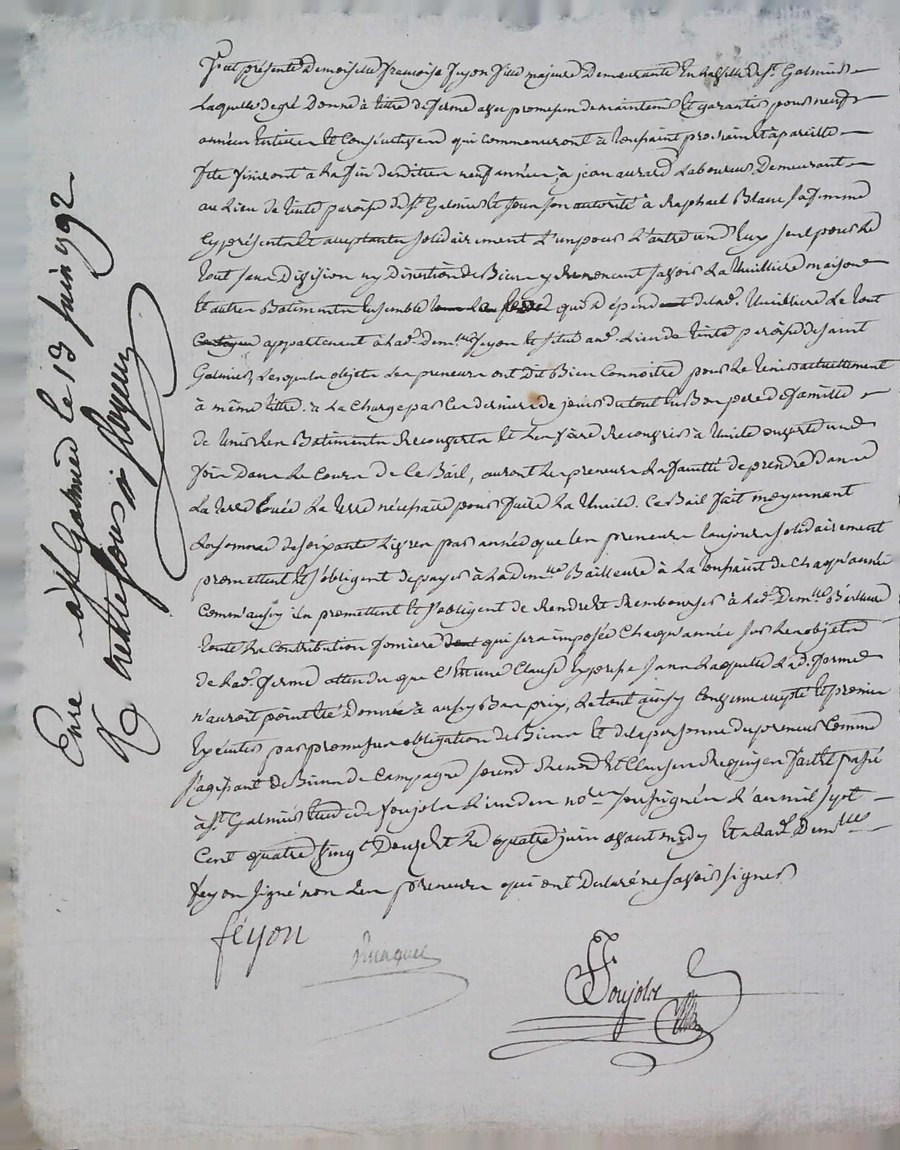 Fut présente demoiselle françoise feyon fille majeure demeurante en la ville de St. Galmier
Laquelle de gré donne à titre de ferme avec promesse de maintenir et garantir pour neuf
années entieres et consécutives qui commenceront à toussaint prochain et à pareille
fête finiront a la fin desdites neuf années, à jean aurard Laboureur demeurant
au lieu de paroisse de St. Galmier et sous son autorité à Raphael Blanc sa femme
cy présents et acceptants solidairement l'un pour l'autre un d'eux seul pour le
tout sans division ny direction de Biens y renoncant savoir la maison
et autres Batiments ensemble qui dépend de lad. le tout
appartenant à lad. demlle feyon et situé aud. Lieu de paroisse de saint
Galmier, lesquels objets les preneurs ont dit Bien connoitre pour le tenir actuellement
à même titre. à la charge par ces derniers de jouir du tout en Bon pere de famille
de tenir les Batiments Recouverts et les faire Recouvrir à une
fois dans le cours de ce Bail, auront les preneurs la faculté de prendre dans
la terre Louée la terre nécessaire pour faire la Ce Bail fait moyennant
la somme de soixante Livres par année que les preneurs toujours solidairement
promettent et s'obligent de payer à lad. demlle Bailleure à la toussaint de chaqu'année
comm'aussy ils promettent et s'obligent de Rendre et Rembourser à lad. demlle Bailleure
toute la Contribution fonciere qui sera imposée chaqu'année sur les objets
de lad. ferme attendu que c'est une Clause expresse sans laquelle lad. ferme
n'auroit point été donnée à aussy Bas prix, le tout aussy convenu accepté et promis
exécuter par promesse obligation de Biens et de la personne du preneur comme
s'agissant de Biens de campagne soumd. Renond. et Clauses Requises fait et passé
à St. Galmier étude de Soujols l'un des nores soussignés l'an mil sept
cent quatre vingt douze et le quatre juin avant midy et a lad. demlle
feyon signé non les preneurs qui ont déclaré ne savoir signer
féyon
Soujols
Enre à St Galmier le 13 juin 1792
R trente sous